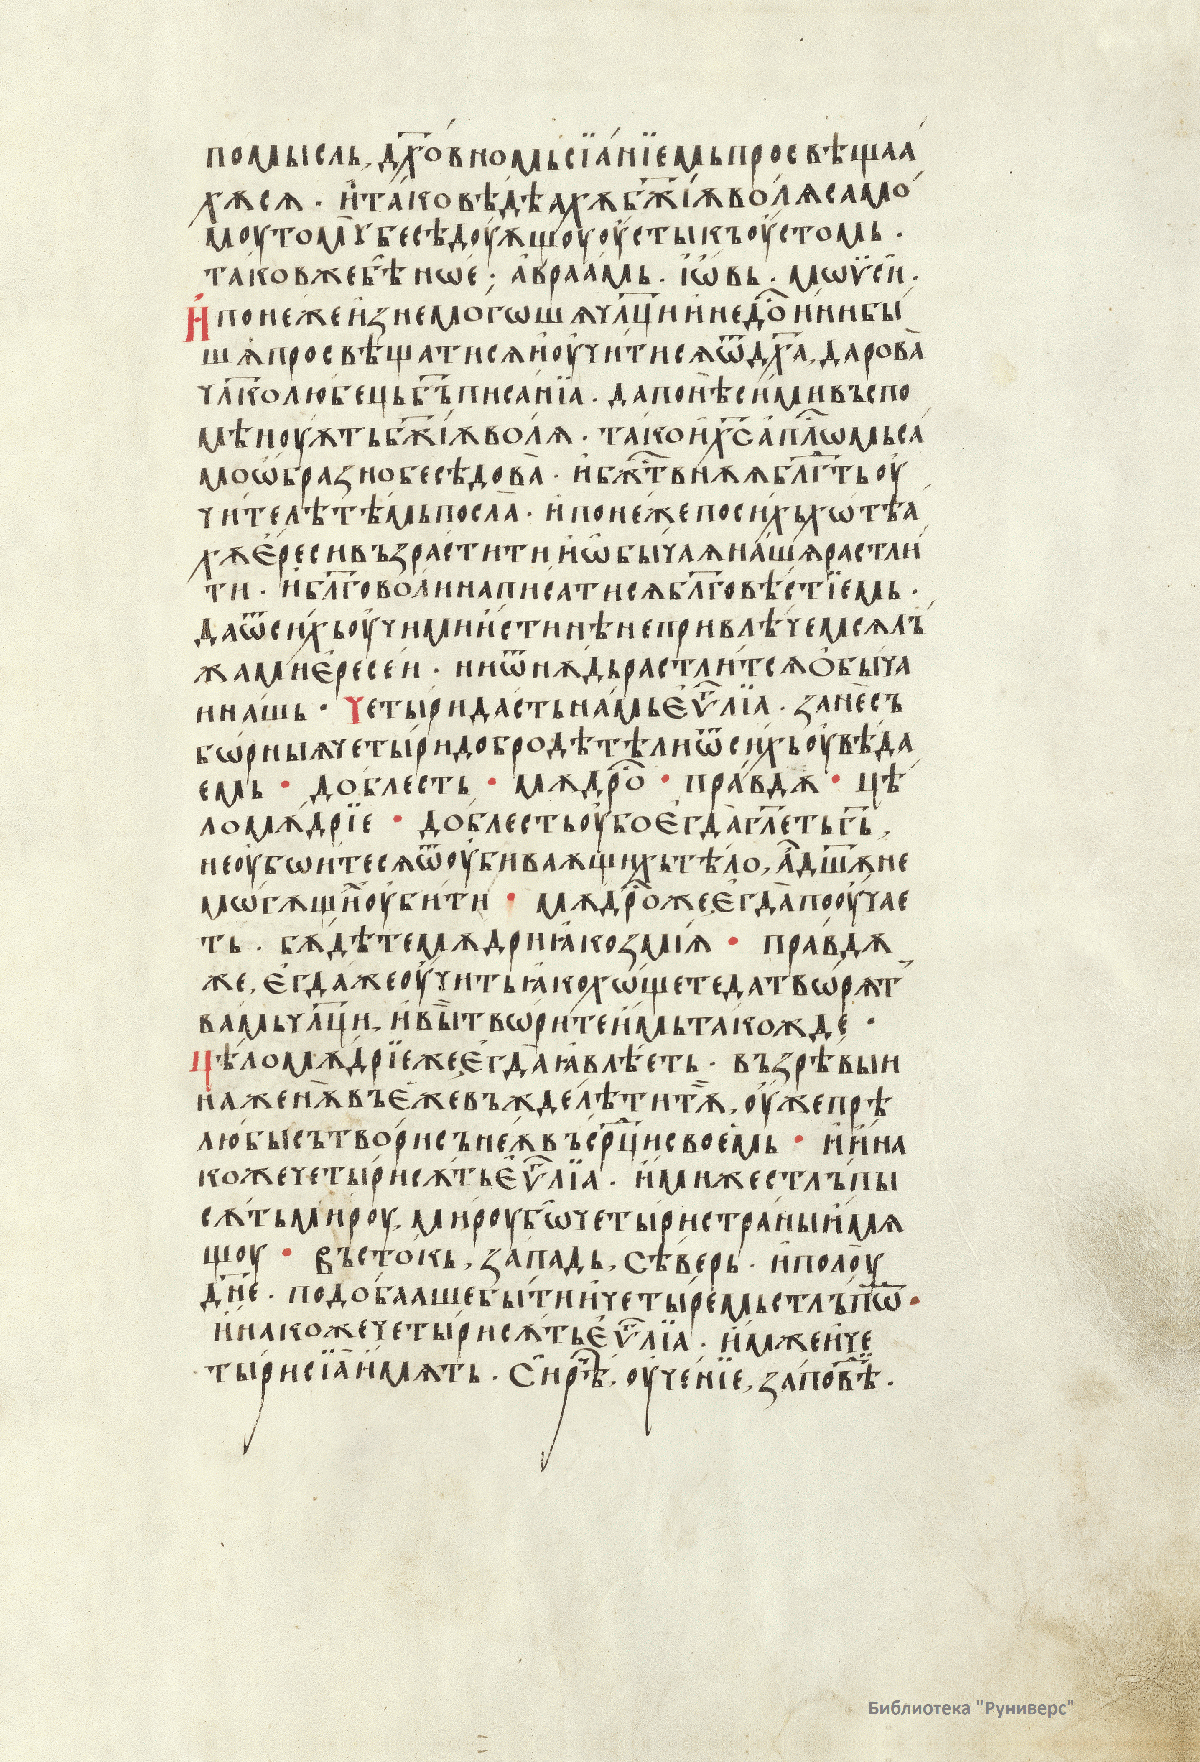 помысль, дх҃овномь сїанїемь просвѣщаа
хѫсѧ. и҆ тако вѣдѣахѫ бж҃їѫ волѧ само
моу томꙋ бесѣдоуѫщоу оусты къ оустомь.
таков же бѣ нѡе; авраамь. їѡвь. мѡѵсеи.
И понеже изнемогошѧ чл҃ци и недо҃ини бы
шѧ просвѣщатисѧ и оучитисѧ ѿ дх҃а, дарова
чл҃колюбець бъ҃ писанїа. да понѣ сими въспо
мѣноуѫть бж҃їѫ волѧ. тако и х҃с апл҃ѡмь са
моѡбразно бесѣдова. и бж҃твнѫѧ блг҃ть оу
чителѣ тѣмь посла. и понеже по сихь хѡтѣа
хѫ ереси възрастити, и ѡбычаѧ нашѧ растли
ти. и блг҃оволи написатисѧ блг҃овѣстїемь.
да ѿ сихь оучими истинѣ не привлѣчемсѧ лъ
жами ересеи. ни ѿнѫдь растлитсѧ обыча
и нашь. Четыри дасть намь еѵ҃лїа. зане съ
бѡрныѧ четыри добродѣтѣли ѿ сихь оувѣда
емь • доблесть • мѫдро҃ • правдѫ • цѣ
ломѫдрїе • доблесть оубо егда гл҃еть гь҃,
не оубѡитесѧ ѿ оубиваѧщихь тѣло, а дш҃ѫ не
мѡгѧщи҃ оубити • мѫдро҃ же, егда пооучае
ть. бѫдѣте мѫдри ꙗко змїѧ • правдѫ
же, егда же оучить ꙗко хѡщете да твѡрѧт
вамь чл҃ци, и вы҃ твѡрите имь такожде •
Цѣломѫдрїе же, егда ꙗвлѣеть. възрѣвыи
на женѫ въ еже въжделѣти тѫ҃, оуже прѣ
любы сътвори съ неѫ въ ср҃ци своемь • и ина
ко же четыри сѫть еѵ҃лїа. имиже стлъпы
сѫть мироу, мироу бѡ четыри страны имѧ
щоу • въстокь, западь, сѣверь. и полоу
дн҃е. подобааше быти и четыремь стлъпѡ҃ •
и инако же четыри сѫть еѵ҃лїа. имже и че
тыри сїа имѧть. сирѣ҃, оученїе, заповѣ҃.
Библиотека "Руниверс"